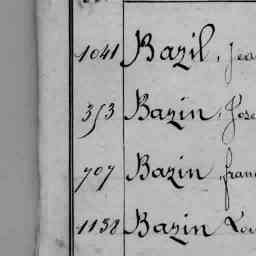 1041 Bazil, Jea
353 Bazin, Jose
707 Bazin, fran
1138 Bazin Lou